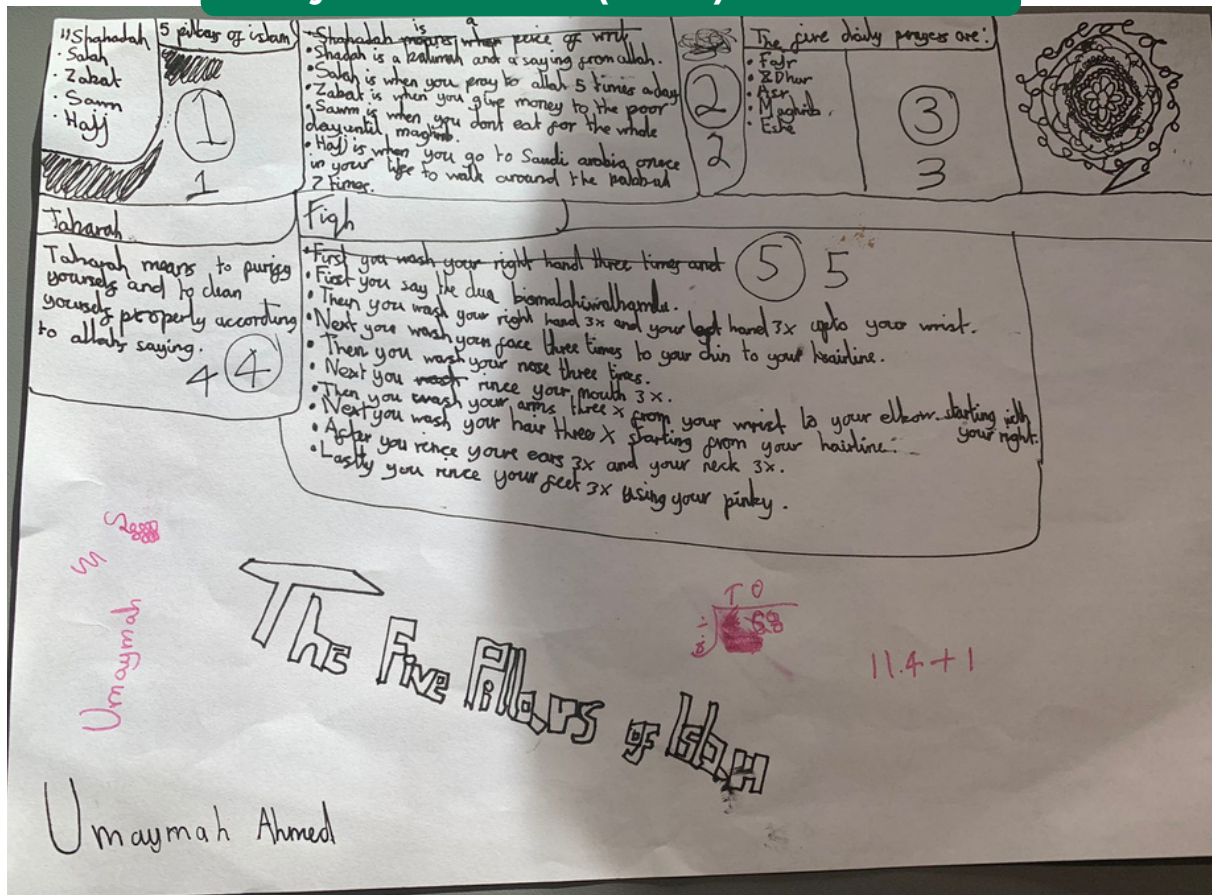 "Shahadah
• Salah
• Zakat
• Sawm
• Hajj
5 pillars of islam
1
1
Shahadah means when peice of writ
is a
• Shadah is a kalimah and a saying from allah.
• Salah is when you pray to allah 5 times a day
• Zakat is when you give money to the poor
• Sawm is when you dont eat for the whole
day until maghrib.
• Hajj is when you go to Saudi arabia once
in your life to walk around the
7 times.
2
2
The five daily prayers are:
• Fajr
• Dhur
• Asr
• Maghrib.
• Eshe
3
3
Taharah
Taharah means to purify
yourself and to clean
yourself properly according
to allahs saying.
4 4
Fiqh
• First you wash your right hand three times and
5 5
• First you say the dua
• Then you wash your right hand 3x and your left hand 3x upto your wrist.
• Next you wash your face three times to your chin to your hairline.
• Then you wash your nose three times.
• Next you wash rince your mouth 3x.
• Then you wash your arms three x from your wrist to your elbow starting with
your right.
• Next you wash your hair three X starting from your hairline.
• After you rence youre ears 3x and your neck 3x.
• Lastly you rince your feet 3x using your pinky.
Umaymah
T O
11.4+1
The Five Pillars of Islam
Umaymah Ahmed